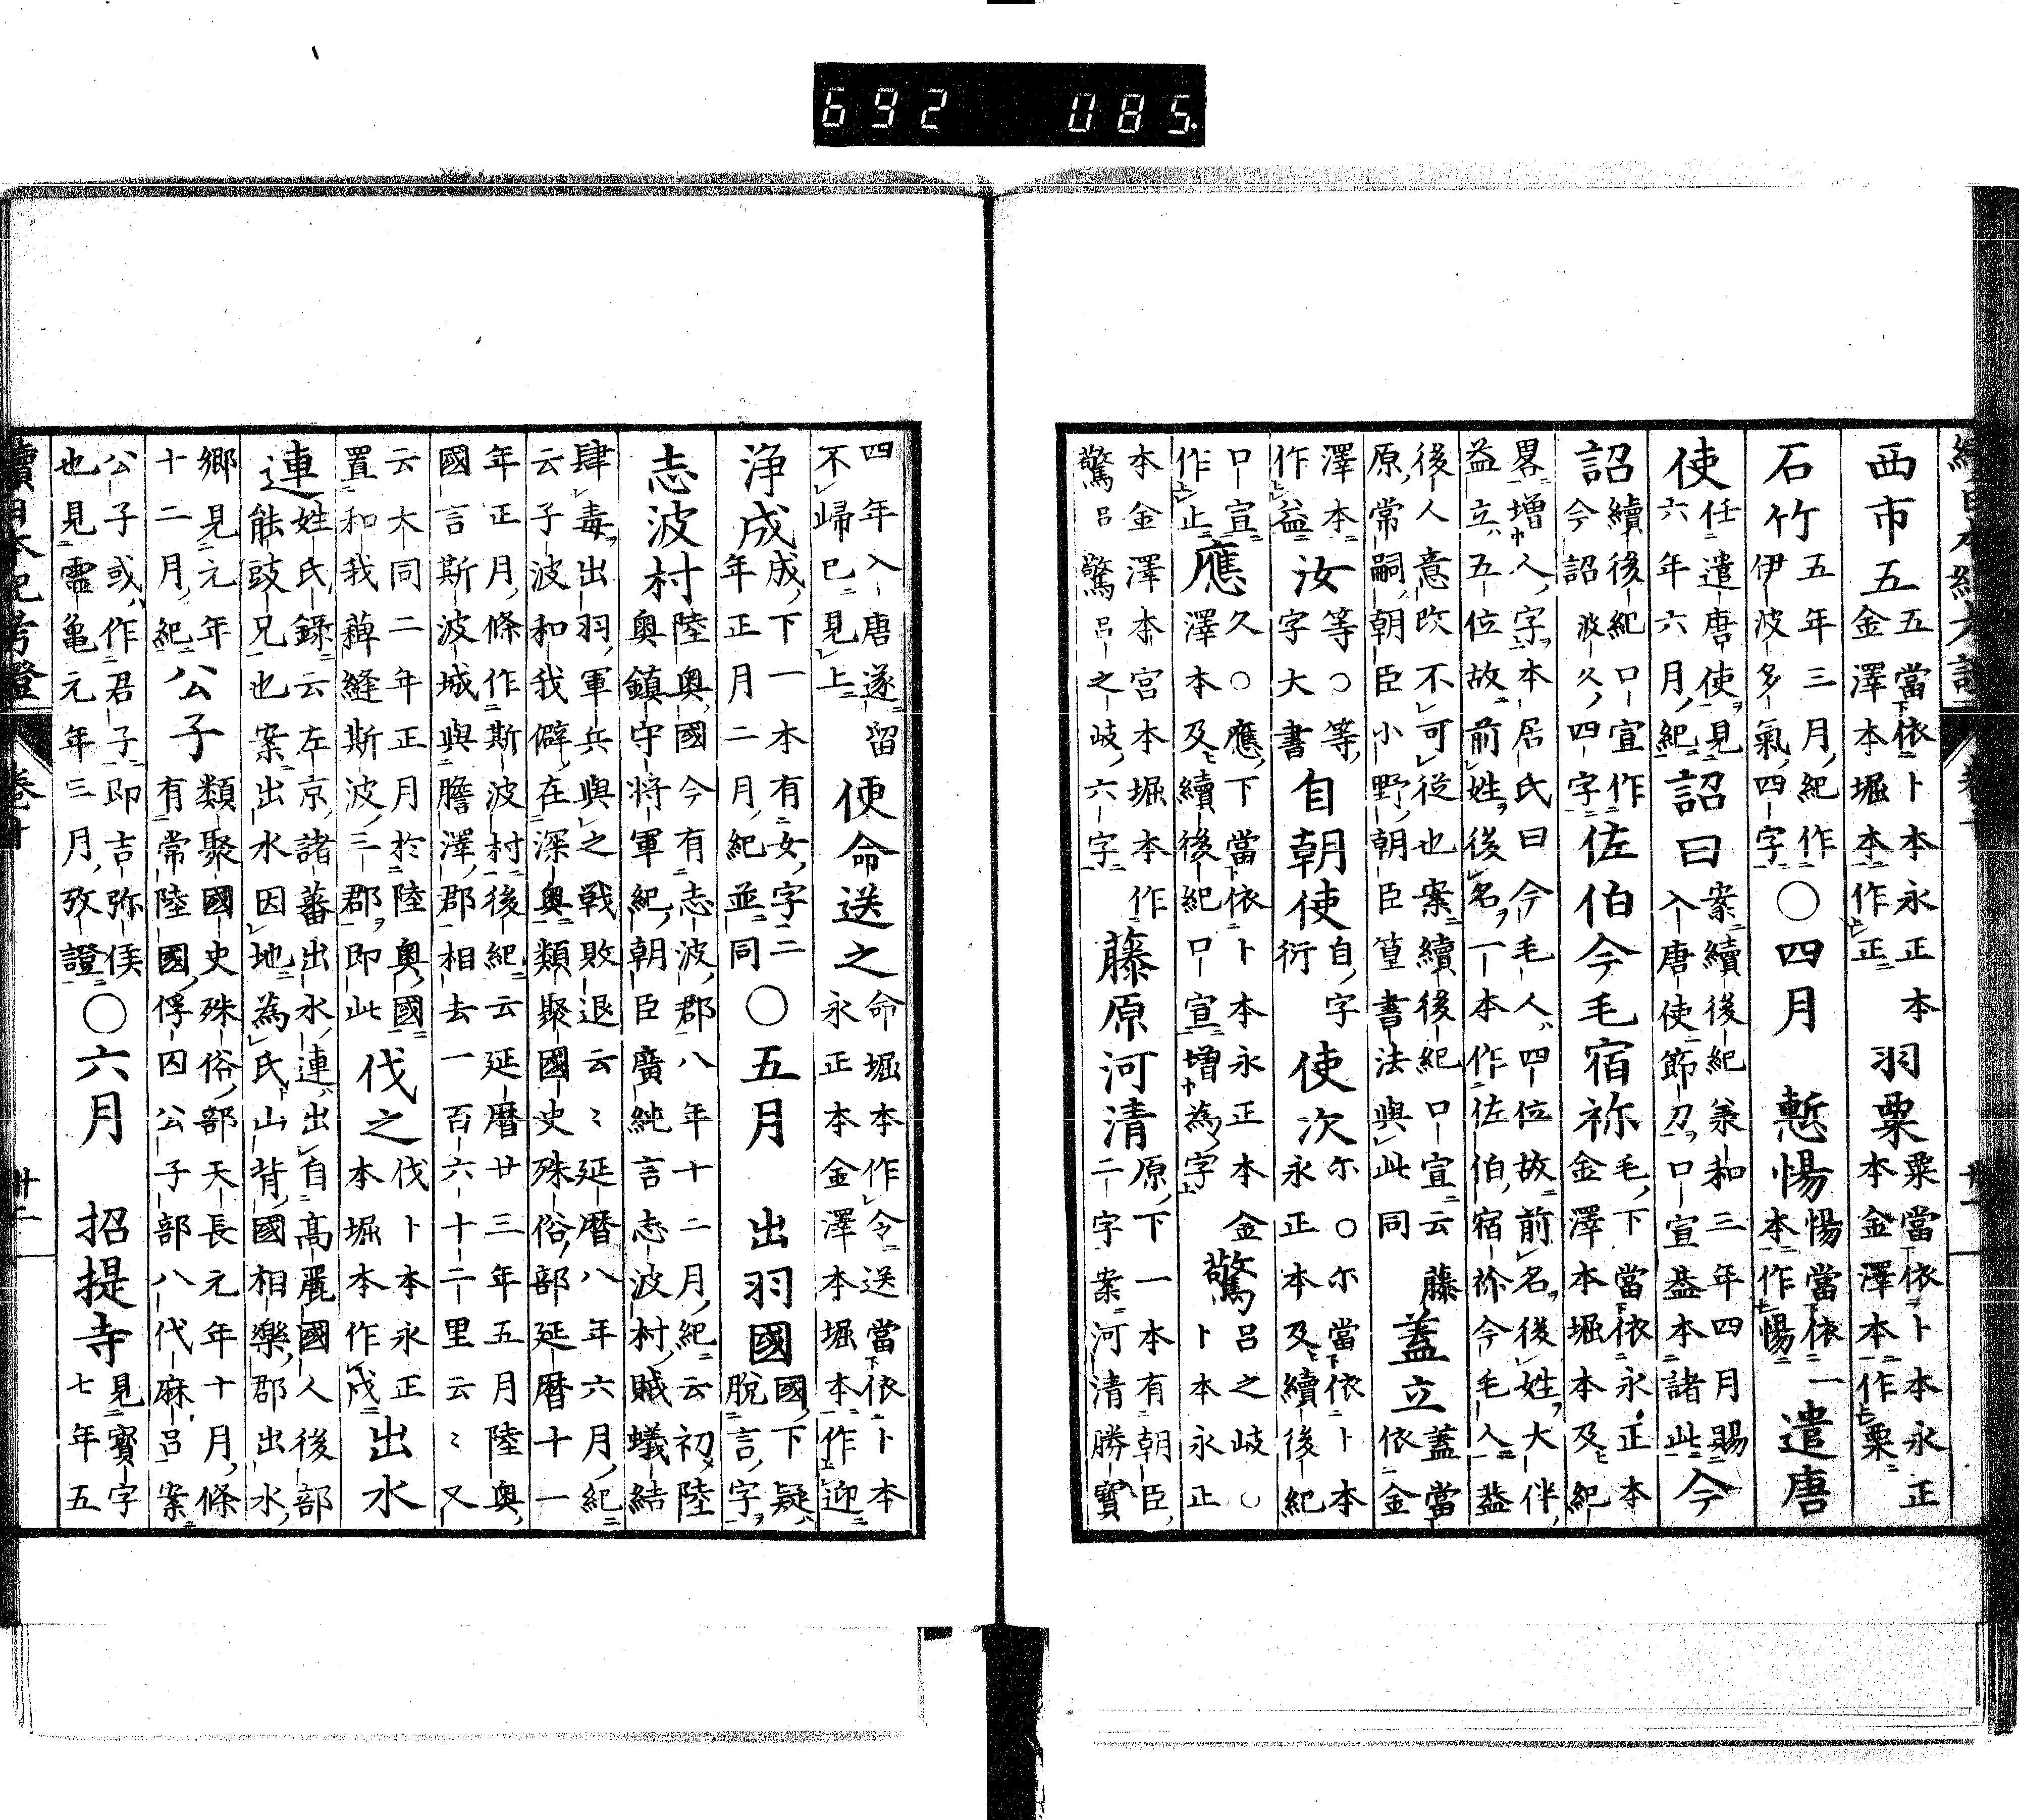 692 085
西市五 五當依卜本永正本金澤本堀本作正 羽粟 粟當依卜本永正本金澤本作栗
石竹 五年三月紀作伊波多氣四字 〇四月 慙惕 惕當依一本作惕 遣唐
使 任遣唐使見六年六月紀 詔曰 案續後紀承和三年四月賜入唐使節刀口宣益本諸此 今
詔 續後紀口宣作今詔波久四字 佐伯今毛宿祢 毛下當依永正本金澤本堀本及紀
畧增人字本居氏曰今毛人四位故前名後姓大伴益立五位故前姓後名一本作佐伯宿祢今毛人益
後人意改不可從也案續後紀口宣云藤原常嗣朝臣小野朝臣篁書法與此同 蓋立 蓋當依金
澤本作益 汝等 〇等字大書 自朝使 自字衍 使次尓 〇尓當依卜本永正本及續後紀
口宣作止 應久 〇應下當依卜本永正本金澤本及續後紀口宣增為字 驚呂之岐 〇卜本永正
本金澤本宮本堀本作驚呂驚呂之岐六字 藤原河清 原下一本有朝臣二字案河清勝寶
四年入唐遂留不歸已見上 使命送之 命堀本作令送當依卜本永正本金澤本堀本作迎
淨成 成下一本有女字二年正月二月紀並同 〇五月 出羽國 國下疑脫言字
志波村 陸奧國今有志波郡八年十二月紀云初陸奧鎮守將軍紀朝臣廣純言志波村賊蟻結
肆毒出羽軍兵與之戰敗退云〻延曆八年六月紀云子波和我僻在深奧類聚國史殊俗部延曆十一
年正月條作斯波村後紀云延曆廿三年五月陸奧國言斯波城與膽澤郡相去一百六十二里云〻又
云大同二年正月於陸奧國置和我薭縫斯波三郡即此 伐之 伐卜本永正本堀本作戍 出水
連 姓氏錄云左京諸蕃出水連出自高麗國人後部能豉兄也案出水因地為氏山背國相樂郡出水
鄉見元年十二月紀 公子 類聚國史殊俗部天長元年十月條有常陸國俘囚公子部八代麻呂案
公子或作君子即吉弥侯也見靈龜元年三月攷證 〇六月 招提寺 見寶字七年五
續日本紀考證 卷十 卅二